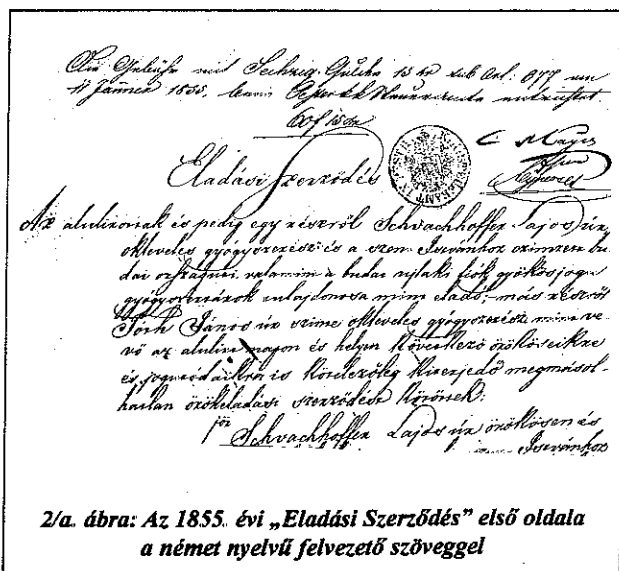 Die Gebühr mit Sechzig Gulden 15 kr sub Art: 977 am
11 Jänner 1855, beim Steueramte entrichtet
60 f 15 kr
Eladási Szerződés
Az alulirottak és pedig egy részről Schvachhoffer Lajos úr
okleveles gyógyszerész és a szent Istvánhoz czimzett bu
dai országuti valamint a budai ujlaki fiók gyökösjogu
gyógyszertárok tulajdonosa mint eladó; más részről
Tóth János úr szinte okleveles gyógyszerész mint ve
vő az alulirt napon és helyen következő örököseikre
és jogutódaikra is kötelezőleg kiterjedő megmásol-
hatlan örökeladási szerződést kötöttek:
Schvachhoffer Lajos úr örökösen és
Istvánhoz
2/a. ábra: Az 1855. évi „Eladási Szerződés” első oldala
a német nyelvű felvezető szöveggel